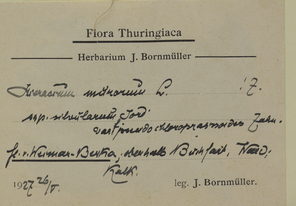 Flora Thuringiaca
Herbarium J. Bornmüller
Hieracium murorum L. ! Z.
ssp. silvularum Jord.
var. pseudochloroprasinoides Zahn.
fl. v. Weimar-Berka, oberhalb Buchfart, Wald,
Kalk.
1927 26/V. leg. J. Bornmüller.